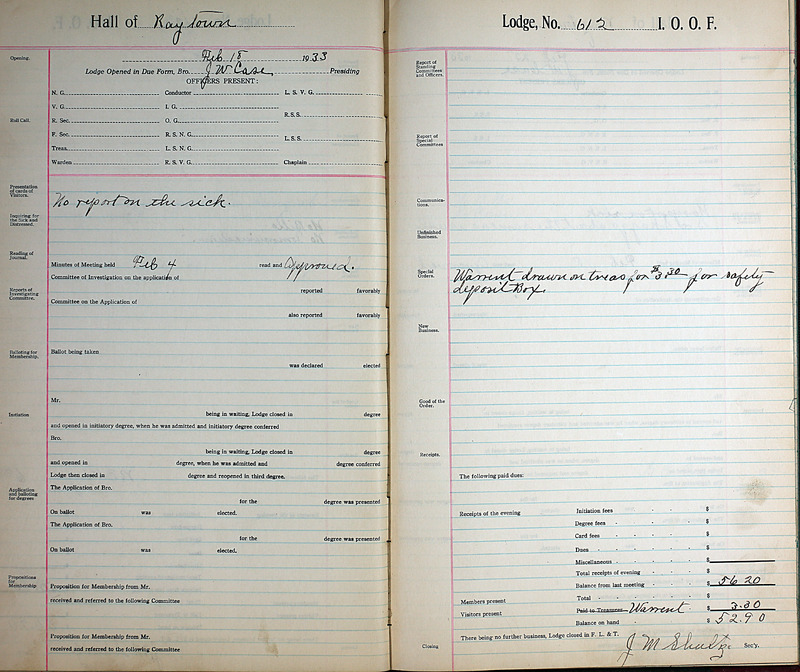 Hall of Raytown
Feb 18 1933
Opening.
Lodge Opened in Due Form, Bro. J W Case Presiding
OFFICERS PRESENT:
N. G. Conductor L. S. V. G.
V. G. I. G.
R.S.S.
Roll Call.
R. Sec. O. G.
F. Sec. R. S. N. G.
L.S.S.
Treas. L. S. N. G.
Warden R. S. V. G. Chaplain
Presentation of cards of Visitors.
No report on the sick.
Inquiring for the Sick and Distressed.
Reading of Journal.
Minutes of Meeting held Feb 4 read and Approved.
Committee of Investigation on the application of
Reports of Investigating Committee.
reported favorably
Committee on the Application of
also reported favorably
Balloting for Membership.
Ballot being taken
was declared elected
Mr.
Initiation
being in waiting, Lodge closed in degree
and opened in initiatory degree, when he was admitted and initiatory degree conferred
Bro.
being in waiting, Lodge closed in degree
and opened in degree, when he was admitted and degree conferred
Lodge then closed in degree and reopened in third degree.
Application and balloting for degrees
The Application of Bro.
for the degree was presented
On ballot was elected.
The Application of Bro.
for the degree was presented
On ballot was elected.
Propositions for Membership
Proposition for Membership from Mr.
received and referred to the following Committee
Proposition for Membership from Mr.
received and referred to the following Committee
Lodge, No. 612 I. O. O. F.
Report of Standing Committees and Officers.
Report of Special Committees
Communications.
Unfinished Business.
Special Orders.
Warrent drawn on treas for $3.30 for safety
deposit Box.
New Business.
Good of the Order.
Receipts.
The following paid dues:
Receipts of the evening Initiation fees $
Degree fees $
Card fees $
Dues $
Miscellaneous $
Total receipts of evening $
Balance from last meeting $ 56 20
Total $
Members present
Paid to Treasurer Warrent $ 3.30
Visitors present
Balance on hand $ 52.90
There being no further business, Lodge closed in F. L. & T.
Closing
J M Sec'y.